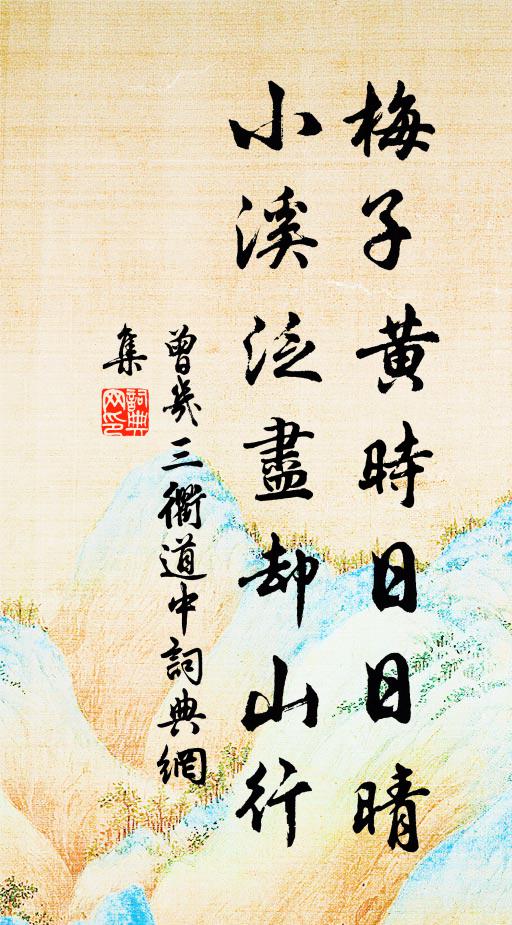 梅子黄時日日晴
小溪泛盡却山行
曾幾三衢道中詞典網
集
詞典網印